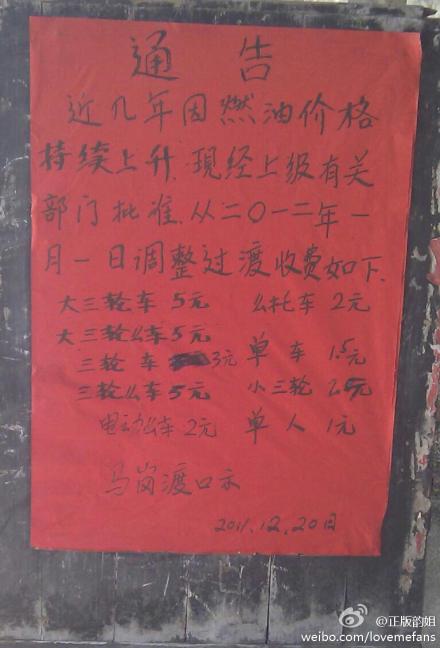 通告
近几年因燃油价格
持续上升.现经上级有关
部门批准.从二〇一二年一
月一日调整过渡收费如下.
大三轮车 5元 么托车 2元
大三轮么车5元
三轮 车 3元 单 车 1.5元
三轮么车5元 小三轮
电动么车2元 单 人 1元
马岗渡口示
2011.12.20日
@正版的姐
weibo.com/lovemefans